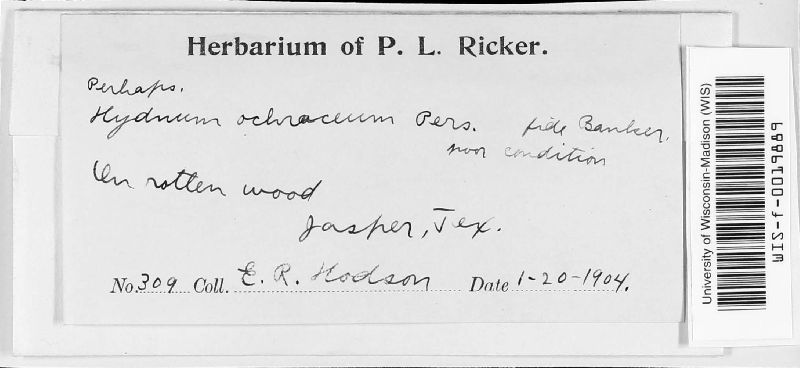 Herbarium of P. L. Ricker.
Perhaps.
Hydnum ochraceum Pers. fide Banker.
poor condition
On rotten wood
Jasper, Tex.
No. 309 Coll. E. R. Hodson Date 1-20-1904.
University of Wisconsin-Madison (WIS)
WIS-f-0019889